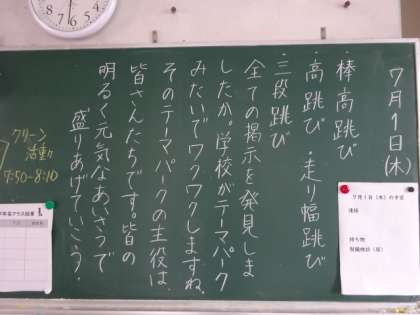 7月1日(木)
棒高跳び
・高跳び ・走り幅跳び
・三段跳び
全ての掲示を発見しま
したか。学校がテーマパーク
みたいでワクワクしますね。
そのテーマパークの主役は、
皆さんたちです。皆の
明るく元気なあいさつで
盛りあげていこう!
クリーン
活動
7:50-8:10
7月1日(木)の予定
連絡
持ち物